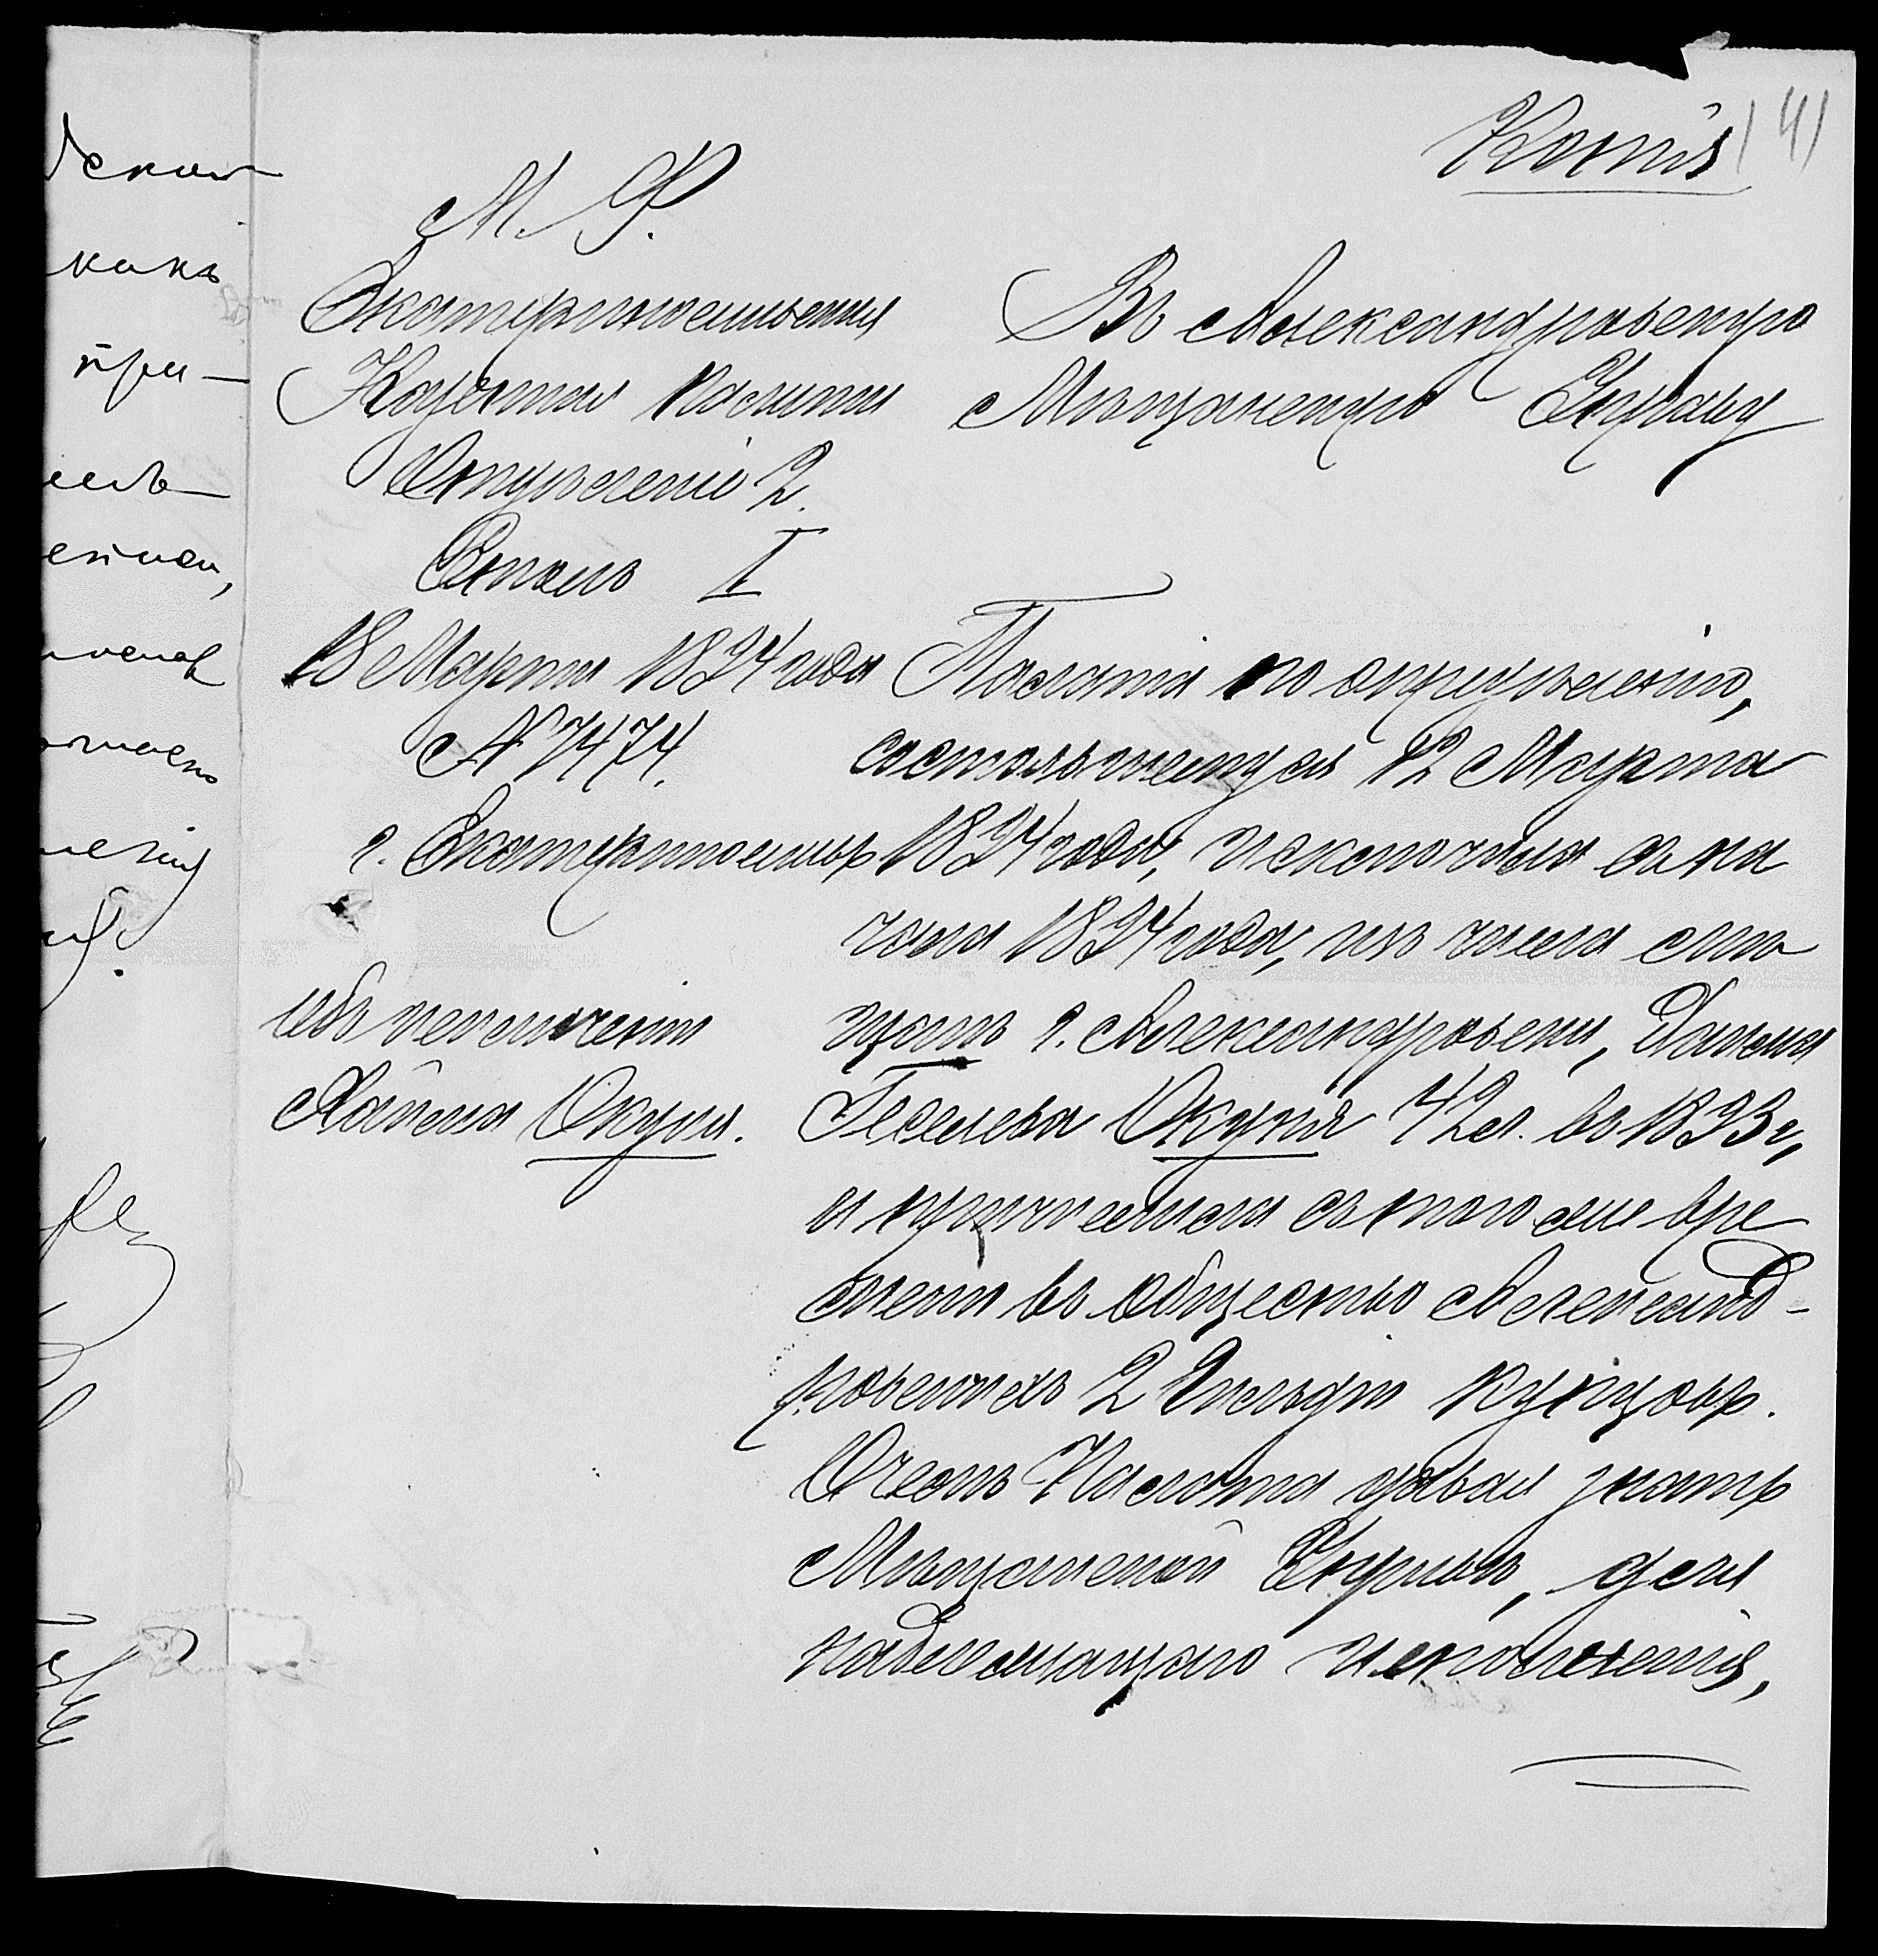 Копія
41
М. Ф.
Екатеринославская
Казенная Палата
Отдѣленіе 2.
Столъ I
18 Марта 1894 года
№ 7474.
г. Екатеринославъ
Объ исключеніи
Хаима Окуня.
Въ Александровскую
Мѣщанскую Управу
Палата по опредѣленію,
состоявшемуся 12 Марта
1894 года, исключила съ на
чала 1894 года, изъ числа мѣ
щанъ г. Александровска, Хаима
Геселева Окуня 42 л. въ 1893 г.,
и причислила съ того же вре
мени въ общество Александ-
ровскихъ 2 Гильдіи купцовъ.
О чемъ Палата даетъ знать
Мѣщанской Управѣ, для
надлежащаго исполненія,
какъ
при-